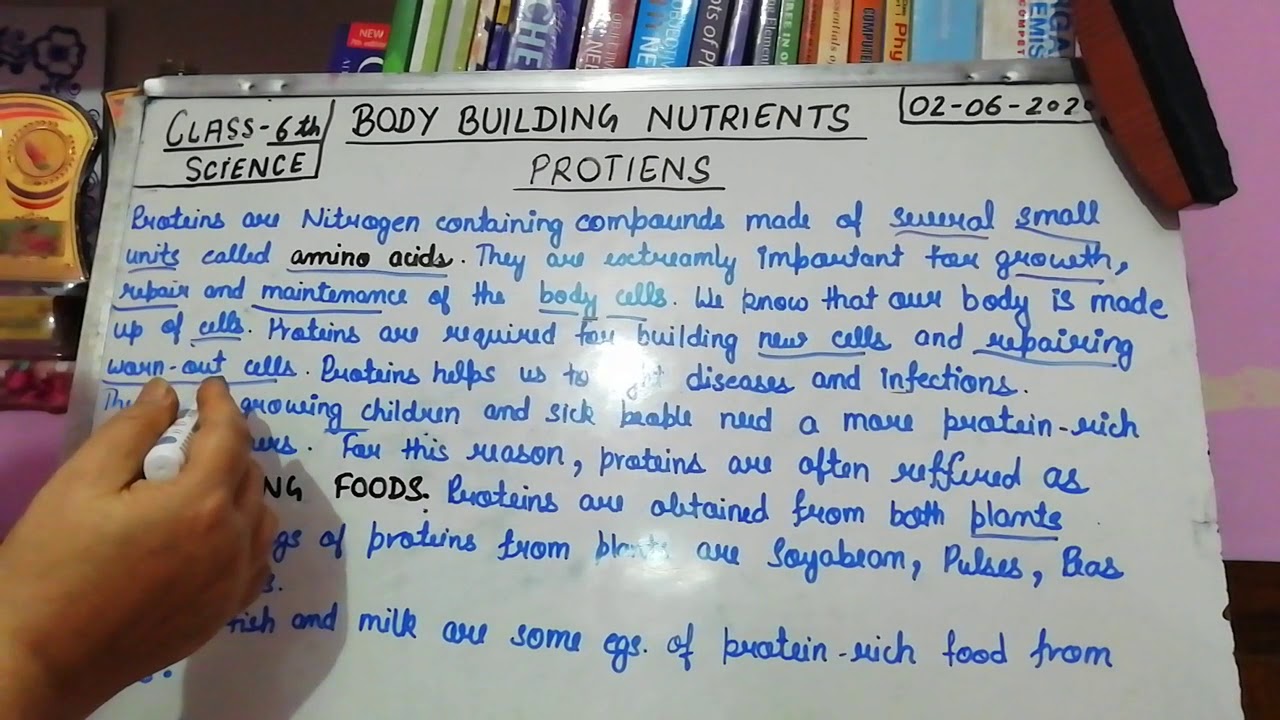 CLASS-6th
SCIENCE
BODY BUILDING NUTRIENTS
02-06-202
PROTIENS
Proteins are Nitrogen containing compounds made of several small
units called amino acids. They are extreamly important for growth,
repair and maintenance of the body cells. We know that our body is made
up of cells. Proteins are required for building new cells and repairing
warn-out cells. Proteins helps us to fight diseases and infections.
growing children and sick peaple need a more protein-rich
For this reason, proteins are often reffered as
FOODS. Proteins are obtained from both plants
of proteins from plants are Soyabean, Pulses, Peas
fish and milk are some egs. of protein-rich food from
NEW
CHE
OBJECTIVE
NEE
OBJECTIVE
NE
COMPUTER
Phy